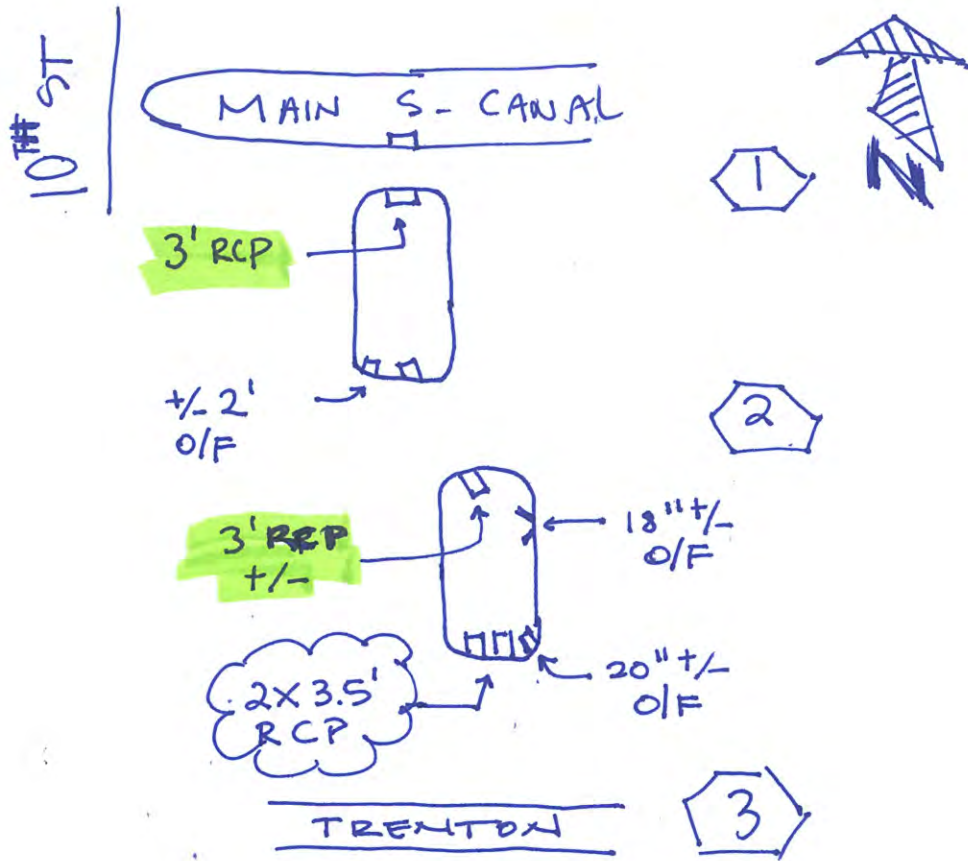 10TH ST
MAIN S-CANAL
N
1
3' RCP
+/- 2'
O/F
2
3' RCP
+/-
18" +/-
O/F
2X 3.5'
RCP
20" +/-
O/F
3
TRENTON